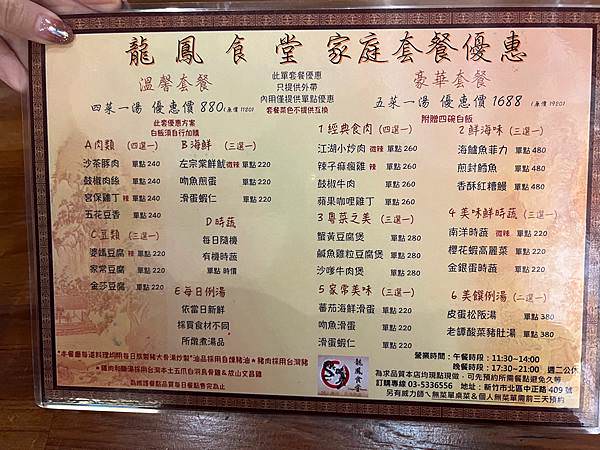 龍鳳食堂 家庭套餐優惠
溫馨套餐
此單套餐優惠
只提供外帶
內用僅提供單點優惠
套餐菜色不提供互換
豪華套餐
四菜一湯 優惠價 880(原價 1120)
五菜一湯 優惠價 1688 (原價 1920)
此套優惠方案
白飯須自行加購
附贈四碗白飯
A 肉類 (四選一)
沙茶豚肉 單點 240
鼓椒肉絲 單點 240
宮保雞丁 辣 單點 240
五花豆香 單點 240
B 海鮮 (三選一)
左宗棠鮮魷 微辣 單點 220
吻魚煎蛋 單點 220
滑蛋蝦仁 單點 220
C 豆類 (三選一)
婆媽豆腐 辣 單點 220
家常豆腐 單點 220
金莎豆腐 單點 220
D 時蔬
每日隨機
有機時蔬
單點 時價
E 每日例湯
依當日新鮮
採買食材不同
所燉煮湯品
1 經典食肉 (四選一)
江湖小炒肉 微辣 單點 260
辣子麻瘋雞 辣 單點 260
鼓椒牛肉 單點 260
蘋果咖哩雞丁 單點 260
2 鮮海味 (三選一)
海鱸魚菲力 單點 480
煎封鱈魚 單點 480
香酥紅糟鰻 單點 480
3 粵菜之美 (三選一)
蟹黃豆腐煲 單點 280
鹹魚雞粒豆腐煲 單點 280
沙嗲牛肉煲 單點 280
4 美味鮮時蔬 (三選一)
南洋時蔬 微辣 單點 220
櫻花蝦高麗菜 單點 220
金銀蛋時蔬 單點 220
5 家常美味 (三選一)
蕃茄海鮮滑蛋 單點 220
吻魚滑蛋 單點 220
滑蛋蝦仁 單點 220
6 美饌例湯 (二選一)
皮蛋松阪湯 單點 380
老譚酸菜豬肚湯 單點 380
*本餐廳每道料理均用每日熬製豬大骨湯炒製*油品採用自煉豬油*豬肉採用台灣豬
*雞肉和雞湯採用台灣本土五爪白羽烏骨雞&放山文昌雞
為維護餐點品質每日餐點售完為止
龍鳳食堂
營業時間:午餐時段:11:30~14:00
晚餐時段:17:30~21:00 週二公休
為求品質本店均現點現做,可先預約所需餐點避免久等
訂購專線 03-5336556 地址:新竹市北區中正路 409 號
另有威力師ㄟ無菜單桌菜&個人無菜單需前三天預約